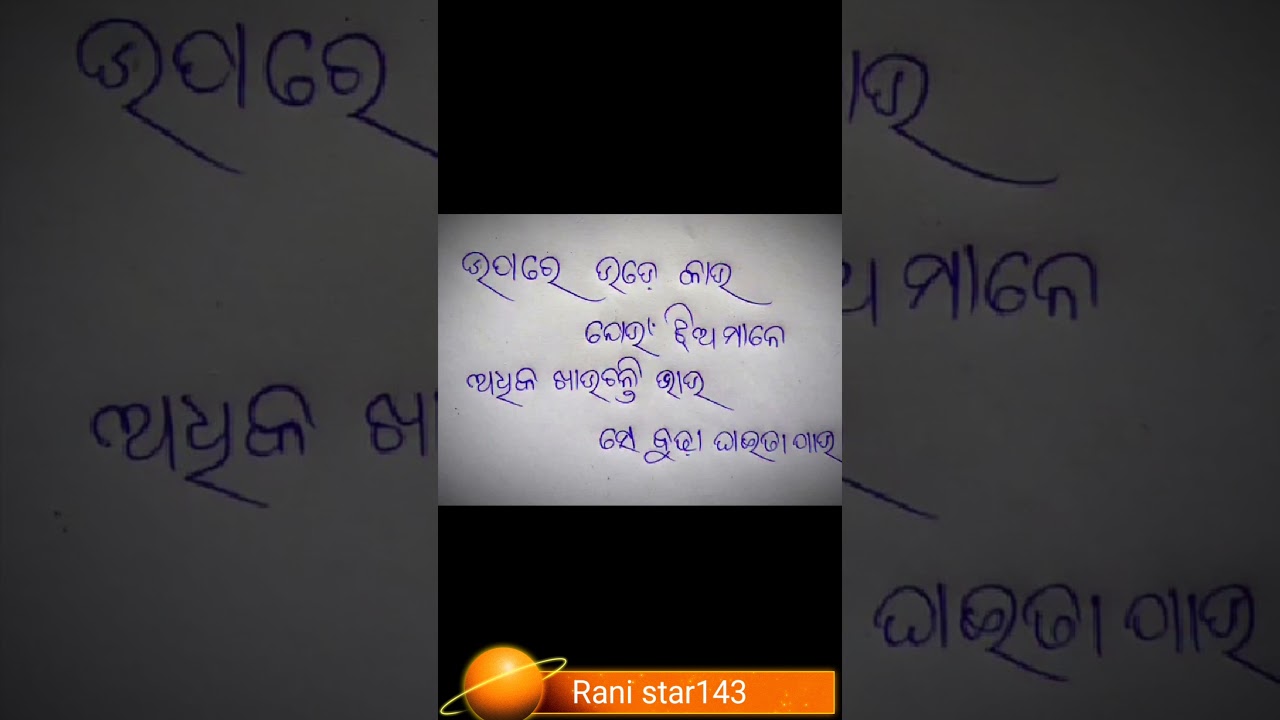 ଉପରେ ଉଡ଼େ କାଉ
ଯୋଉଁ ଝିଅ ମାନେ
ଅଧିକ ଖାଉଚନ୍ତି ଭାଉ
ସେ ବୁଢ଼ା ଘଇତା ପାଉ
Rani star143